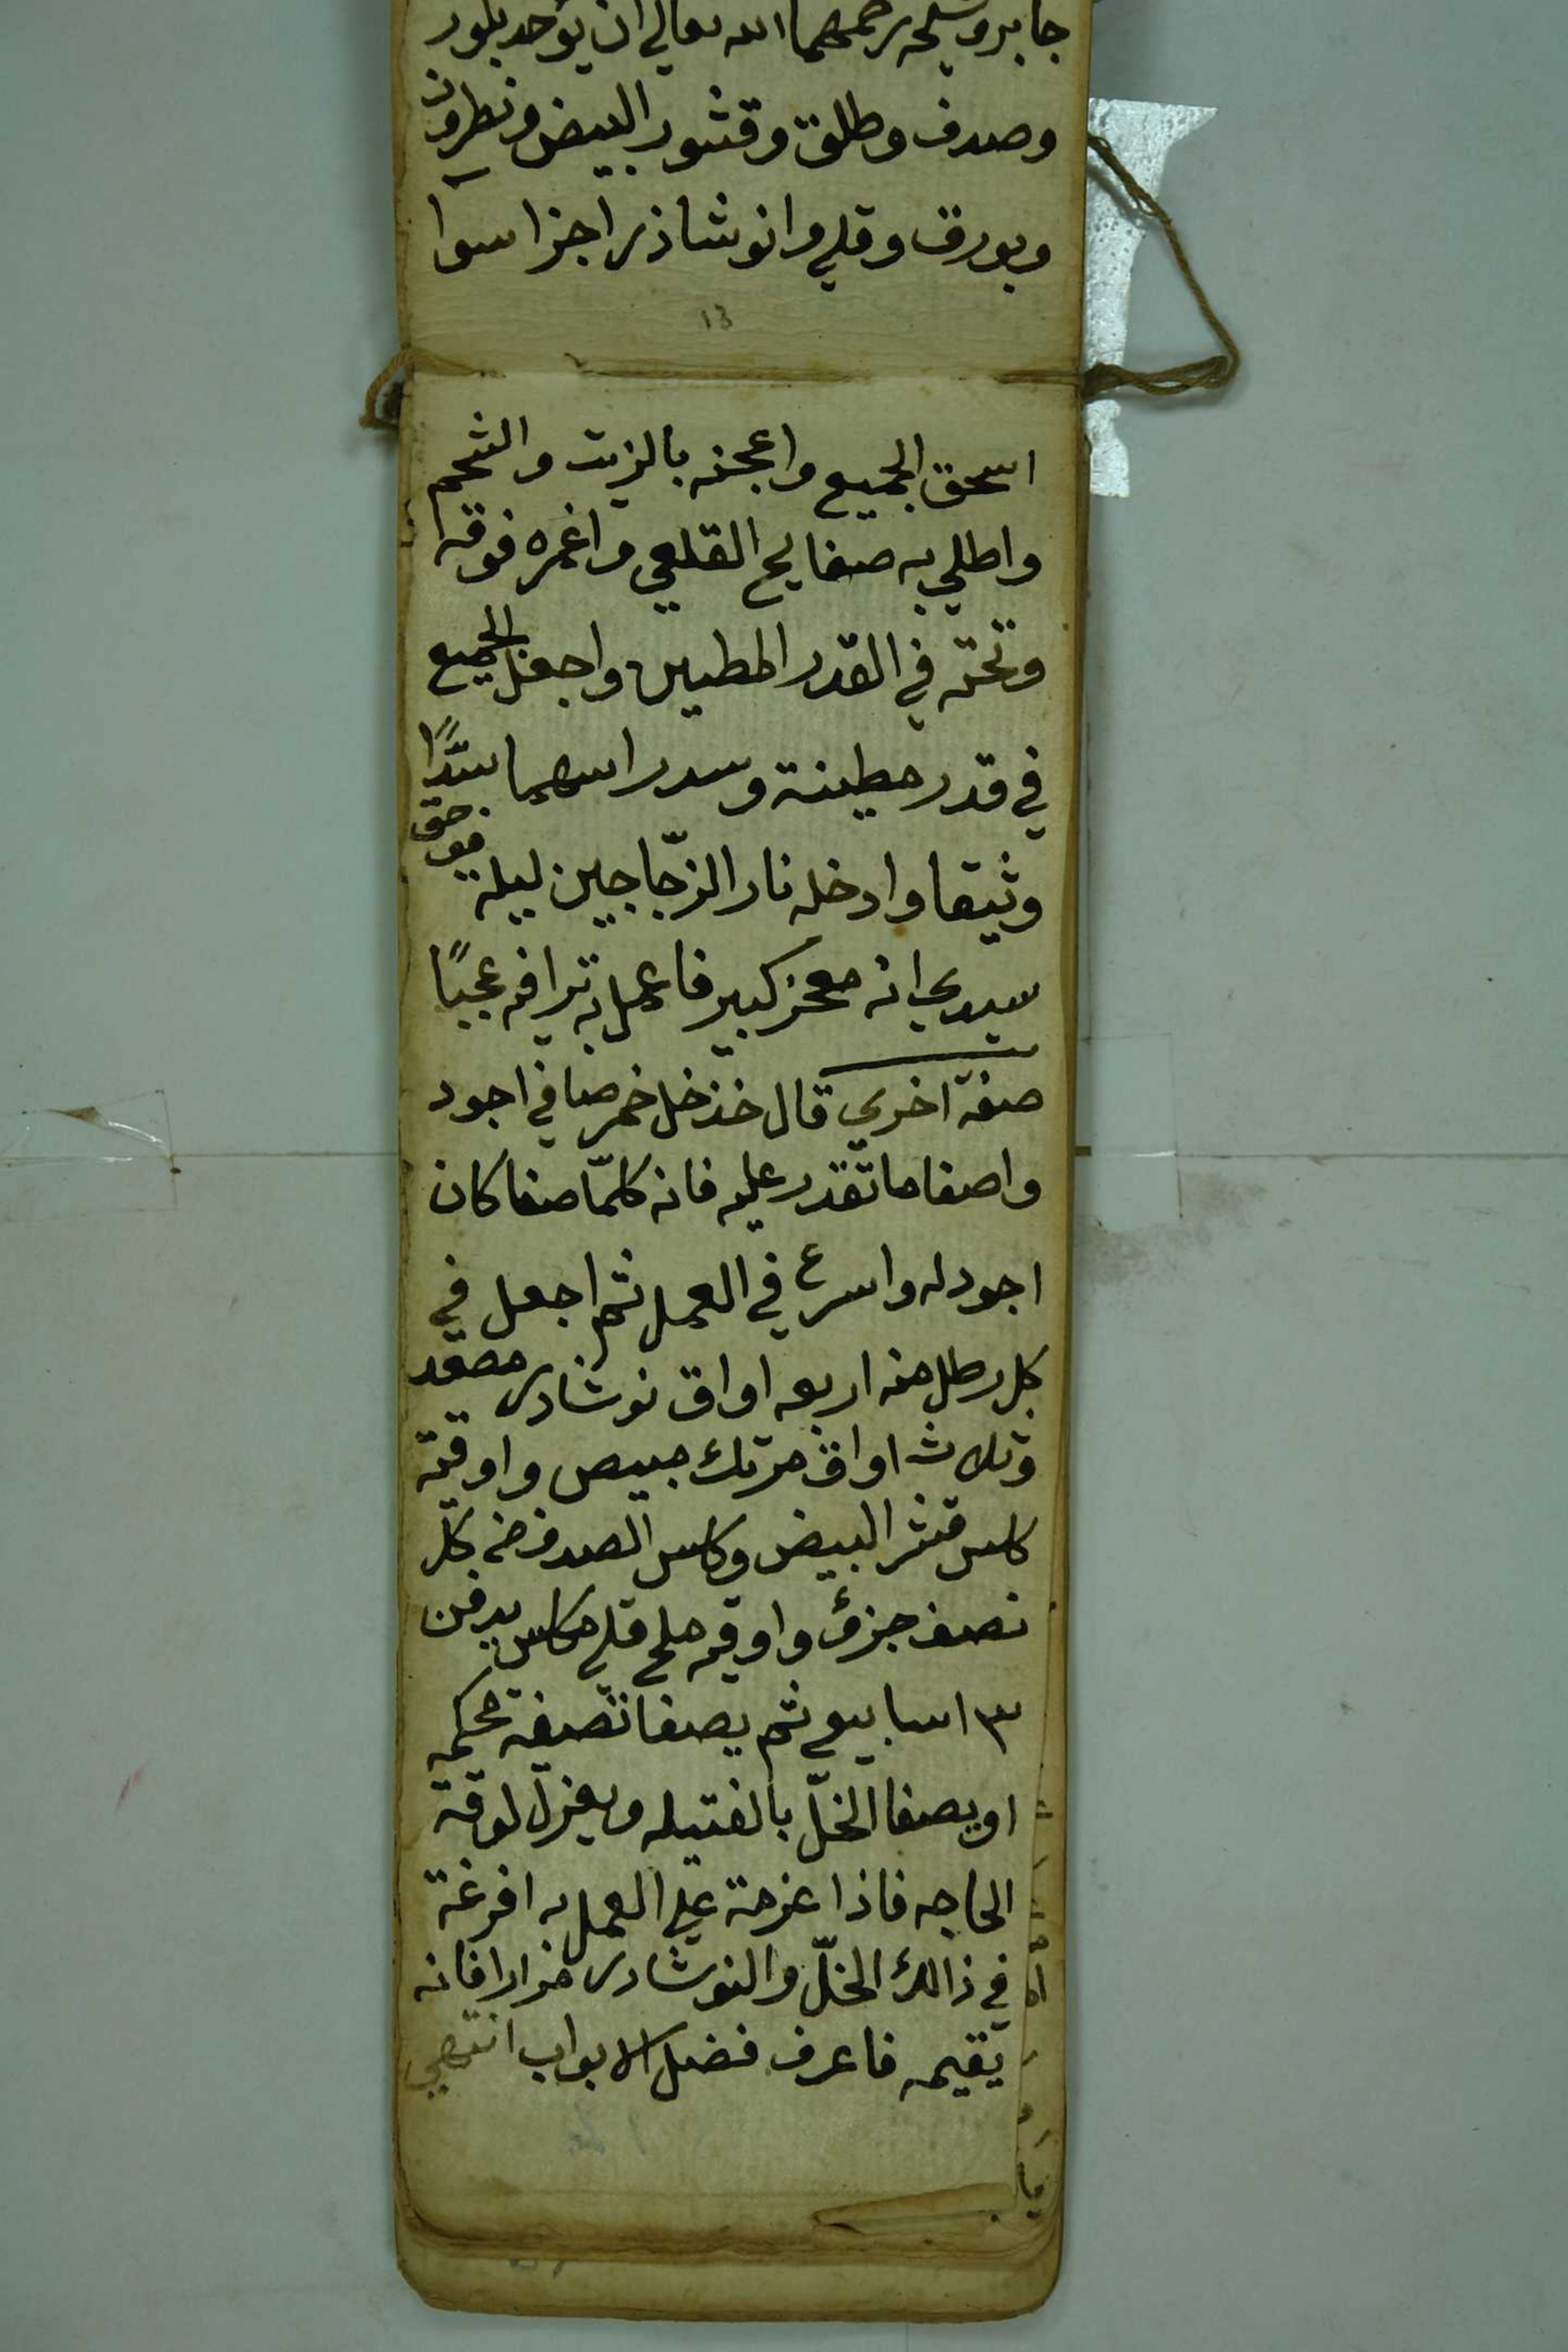 جابر وشيخه رحمهما الله تعالي ان يؤخد بلور
وصدف وطلق وقشور البيض ونطرون
وبورق وقلي وانوشاذر اجزا سوا
13
اسحق الجميع واعجنه بالزيت والشحم
واطلي به صفايح القلعي واغمره فوقه
وتحته في القدر المطين واجعل الجميع
في قدر مطينة وسد راسهما سدًّا
وثيقا وادخله نار الزجّاجين ليلة فوحق
سيدي انه معجز كبير فاعمل به ترافه عجبًا
صفة اخري قال خذ خل خمر صافي اجود
واصفا ما تقدر عليه فانه كلمّا صفا كان
اجود له واسرع في العمل ثم اجعل في
كل رطل منه اربعه اواق نوشادر مصعد
وثلاث اواق مرتك مبيض واوقية
كلس قشر البيض وكلس الصدف من كل
نصف جزؤ واوقيه ملح قلي مكلس يدفن
٣ اسابيع ثم يصفا تصفية محكمه
او يصفا الخلّ بالفتيله ويعزل لوقة
الحاجه فاذا عزمة علي العمل به افرغة
في ذالك الخلّ والنوشادر مرارا فانه
يقيمه فاعرف فضل الابواب انتهي